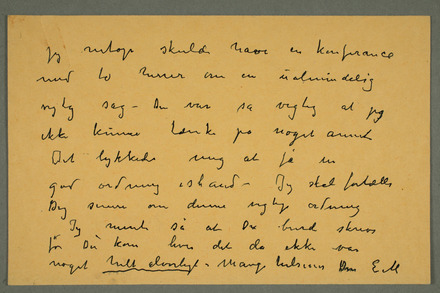 jeg netop skulde have en konference
med to herrer om en ualmindelig
vigtig sag – Den var så vigtig at jeg
ikke kunne tænke på noget annet
Det lykkedes mig at få en
god ordning istand – Jeg skal fortælle
Dig senere om denne vigtige ordning
Jeg mente så at Du burde skrive
før Du kom hvis det da ikke var
noget helt alvorligt – Mange hilsener Din E.M.